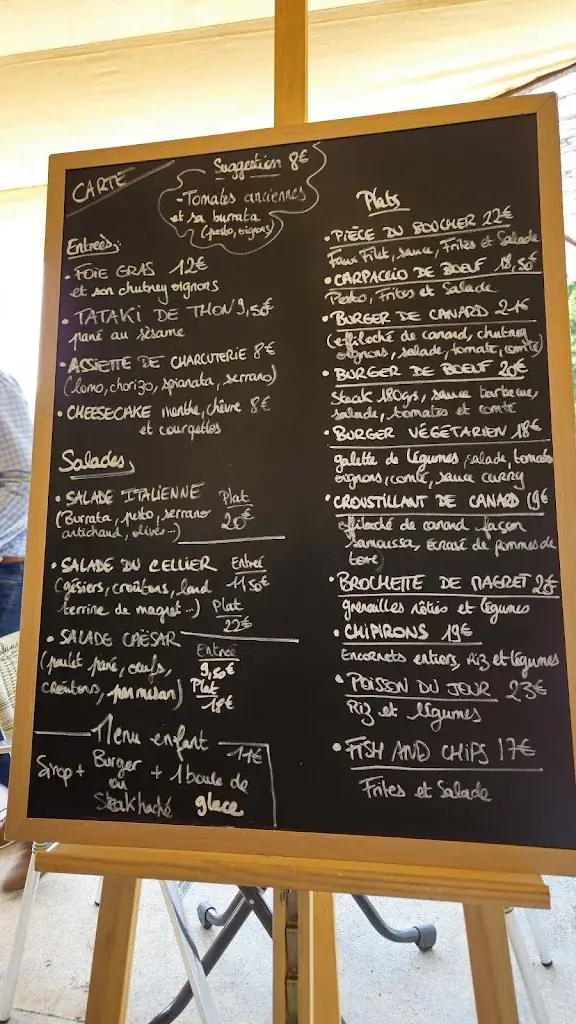 CARTE
Suggestion 8€
- Tomates anciennes
et sa burrata
(pesto, oignons)
Entrées:
• FOIE GRAS 12€
et son chutney oignons
• TATAKI DE THON 9,50€
pané au sésame
• ASSIETTE DE CHARCUTERIE 8€
(lomo, chorizo, spianata, serrano)
• CHEESECAKE menthe, chèvre 8€
et courgettes
Salades,
• SALADE ITALIENNE Plat
(Burrata, pesto, serrano 20€
artichaud, olives...)
• SALADE DU CELLIER Entrée
(gésiers, croûtons, lard 11,50€
terrine de magret...) Plat
22€
• SALADE CAESAR Entrée
(poulet pané, oeufs, 9,50€
croûtons, parmesan) Plat
18€
Menu enfant 11€
Sirop + Burger + 1 boule de
ou
Steak haché glace
Plats
• PIÈCE DU BOUCHER 22€
Faux Filet, sauce, Frites et Salade
• CARPACCIO DE BOEUF 18,50€
Pesto, Frites et Salade
• BURGER DE CANARD 21€
(effiloché de canard, chutney
oignons, salade, tomate, comté)
• BURGER DE BOEUF 20€
Steak 180grs, sauce barbecue,
salade, tomates et comté
• BURGER VÉGÉTARIEN 18€
galette de légumes, salade, tomate
oignons, comté, sauce curry
• CROUSTILLANT DE CANARD 19€
effiloché de canard façon
samoussa, écrasé de pommes de
terre)
• BROCHETTE DE MAGRET
grenailles rôties et légumes
• CHIPIRONS 19€
Encornets entiers, Riz et légumes
• POISSON DU JOUR 23€
Riz et légumes
• FISH AND CHIPS 17€
Frites et Salade